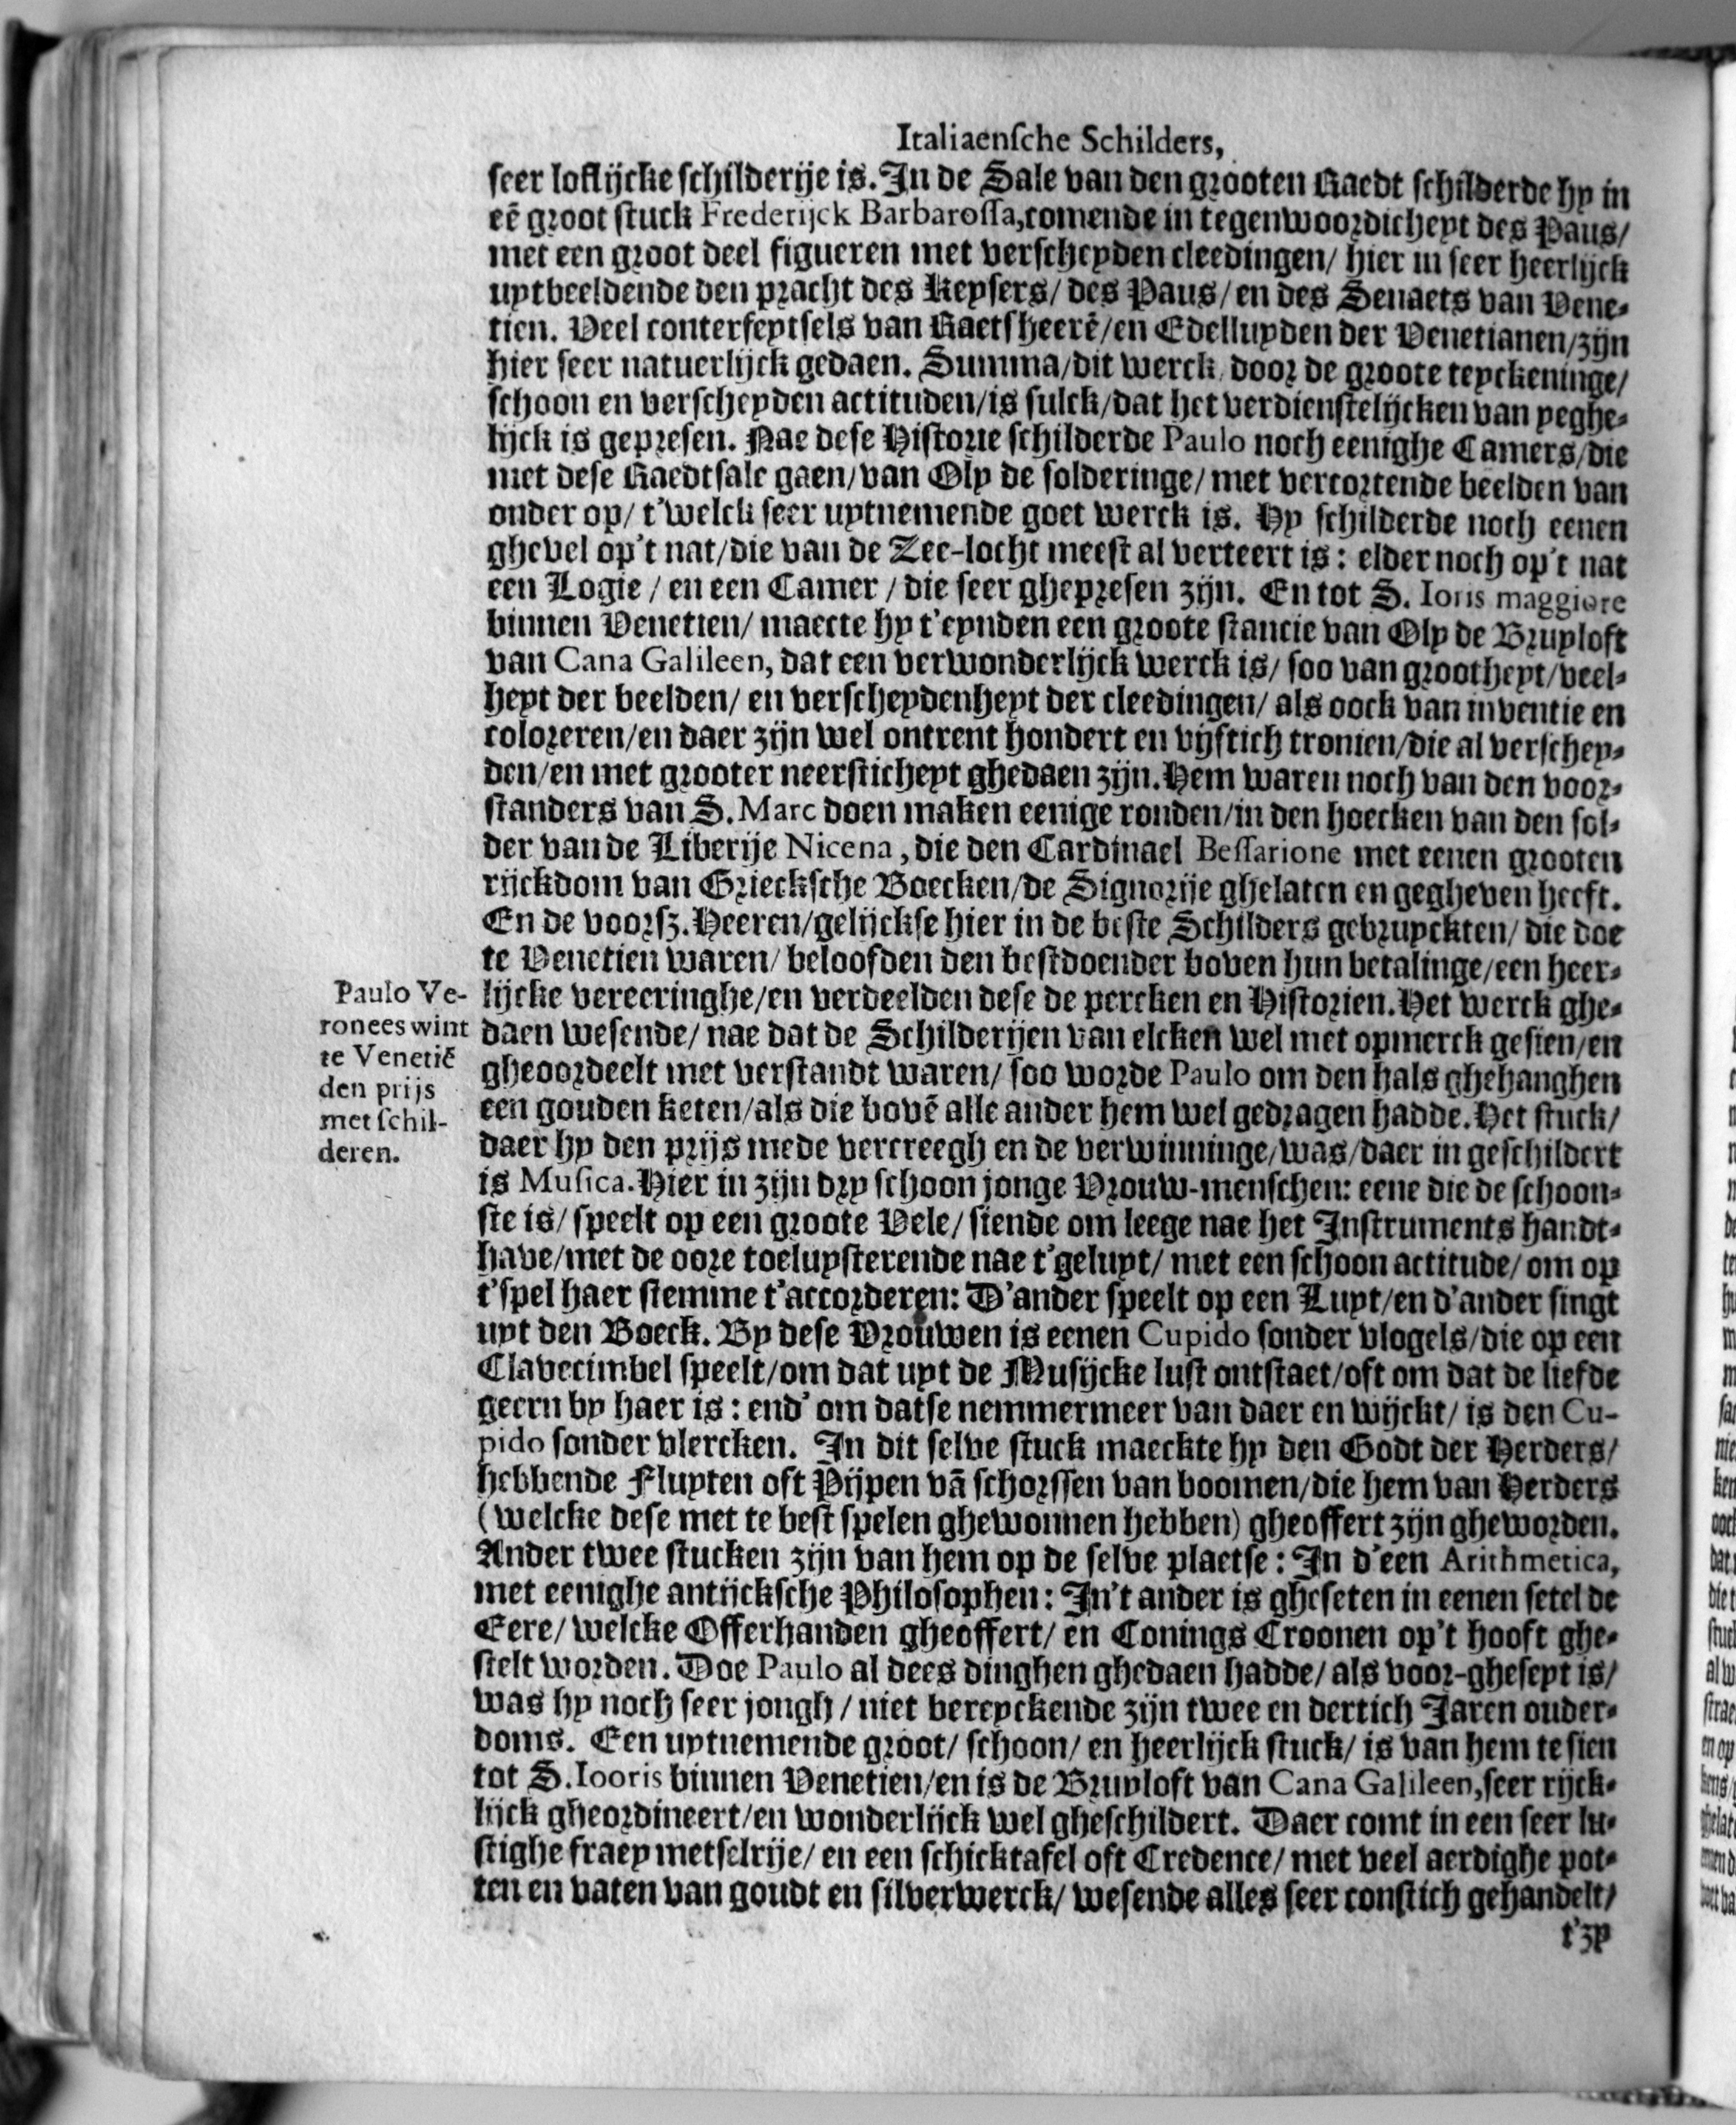 Italiaensche Schilders,
seer loflijcke schilderije is. In de Sale van den grooten Raedt schilderde hy in
eẽ groot stuck Frederijck Barbarossa, comende in tegenwoordicheyt des Paus/
met een groot deel figueren met verscheyden cleedingen/ hier in seer heerlijck
uytbeeldende den pracht des Keysers/ des Paus/ en des Senaets van Vene-
tien. Veel conterfeytsels van Raetsheerẽ/ en Edelluyden der Venetianen/ zijn
hier seer natuerlijck gedaen. Summa/ dit werck door de groote teyckeninge/
schoon en verscheyden actituden/ is sulck/ dat het verdienstelijcken van yeghe-
lijck is gepresen. Nae dese Historie schilderde Paulo noch eenighe Camers/ die
met dese Raedtsale gaen/ van Oly de solderinge/ met vercortende beelden van
onder op/ t'welck seer uytnemende goet werck is. Hy schilderde noch eenen
ghevel op't nat/ die van de Zee-locht meest al verteert is: elder noch op't nat
een Logie / en een Camer / die seer ghepresen zijn. En tot S. Ioris maggiore
binnen Venetien/ maecte hy t'eynden een groote stancie van Oly de Bruyloft
van Cana Galileen, dat een verwonderlijck werck is/ soo van grootheyt/ veel-
heyt der beelden/ en verscheydenheyt der cleedingen/ als oock van inventie en
coloreren/ en daer zijn wel ontrent hondert en vijftich tronien/ die al verschey-
den/ en met grooter neersticheyt ghedaen zijn. Hem waren noch van den voor-
standers van S. Marc doen maken eenige ronden/ in den hoecken van den sol-
der van de Liberije Nicena, die den Cardinael Bessarione met eenen grooten
rijckdom van Griecksche Boecken/ de Signorije ghelaten en gegheven heeft.
En de voorsz. Heeren/ gelijckse hier in de beste Schilders gebruyckten/ die doe
te Venetien waren/ beloofden den bestdoender boven hun betalinge/ een heer-
lijcke vereeringhe/ en verdeelden dese de percken en Historien. Het werck ghe-
daen wesende/ nae dat de Schilderijen van elcken wel met opmerck gesien/ en
gheoordeelt met verstandt waren/ soo worde Paulo om den hals ghehanghen
een gouden keten/ als die bovẽ alle ander hem wel gedragen hadde. Het stuck/
daer hy den prijs mede vercreegh en de verwinninge/ was/ daer in geschildert
is Musica. Hier in zijn dry schoon jonge Vrouw-menschen: eene die de schoon-
ste is/ speelt op een groote Vele/ siende om leege nae het Instruments handt-
have/ met de oore toeluysterende nae t'geluyt/ met een schoon actitude/ om op
t'spel haer stemme t'accorderen: D'ander speelt op een Luyt/ en d'ander singt
uyt den Boeck. By dese Vrouwen is eenen Cupido sonder vlogels/ die op een
Clavecimbel speelt/ om dat uyt de Musijcke lust ontstaet/ oft om dat de liefde
geern by haer is: end' om datse nemmermeer van daer en wijckt/ is den Cu-
pido sonder vlercken. In dit selve stuck maeckte hy den Godt der Herders/
hebbende Fluyten oft Pijpen vã schorssen van boomen/ die hem van Herders
(welcke dese met te best spelen ghewonnen hebben) gheoffert zijn gheworden.
Ander twee stucken zijn van hem op de selve plaetse: In d'een Arithmetica,
met eenighe antijcksche Philosophen: In't ander is gheseten in eenen setel de
Eere/ welcke Offerhanden gheoffert/ en Conings Croonen op't hooft ghe-
stelt worden. Doe Paulo al dees dinghen ghedaen hadde/ als voor-gheseyt is/
was hy noch seer jongh / niet bereyckende zijn twee en dertich Jaren ouder-
doms. Een uytnemende groot/ schoon/ en heerlijck stuck/ is van hem te sien
tot S. Iooris binnen Venetien/ en is de Bruyloft van Cana Galileen, seer rijck-
lijck gheordineert/ en wonderlijck wel gheschildert. Daer comt in een seer lu-
stighe fraey metselrije/ en een schicktafel oft Credence/ met veel aerdighe pot-
ten en vaten van goudt en silverwerck/ wesende alles seer constich gehandelt/
t'zy
Paulo Ve-
ronees wint
te Venetiẽ
den prijs
met schil-
deren.